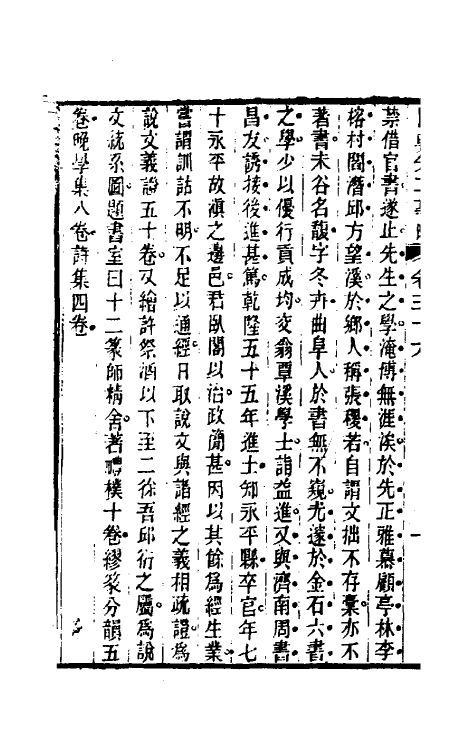 禁借官書遂止先生之學淹博無涯涘於先正雅慕顧亭林李
榕村閻潛邱方望溪於鄉人稱張稷若自謂文拙不存稾亦不
著書未谷名馥字冬卉曲阜人於書無不窺尤邃於金石六書
之學少以優行貢成均交翁覃溪學士誧益進又與濟南周書
昌友誘接後進甚篤乾隆五十五年進士知永平縣卒官年七
十永平故滇之邊邑君臥閣以治政簡甚因以其餘為經生業
嘗謂訓詁不明不足以通經日取說文與諸經之義相疏證為
說文義證五十卷又繪許祭酒以下至二徐吾邱衍之屬為說
文統系圖題書室曰十二篆師精舍著禮樸十卷繆篆分韻五
卷晚學集八卷詩集四卷